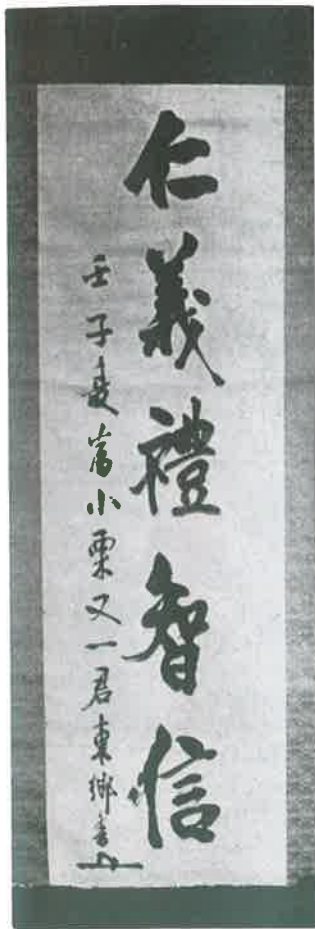 仁義禮智信
壬子夏為小栗又一君東郷書